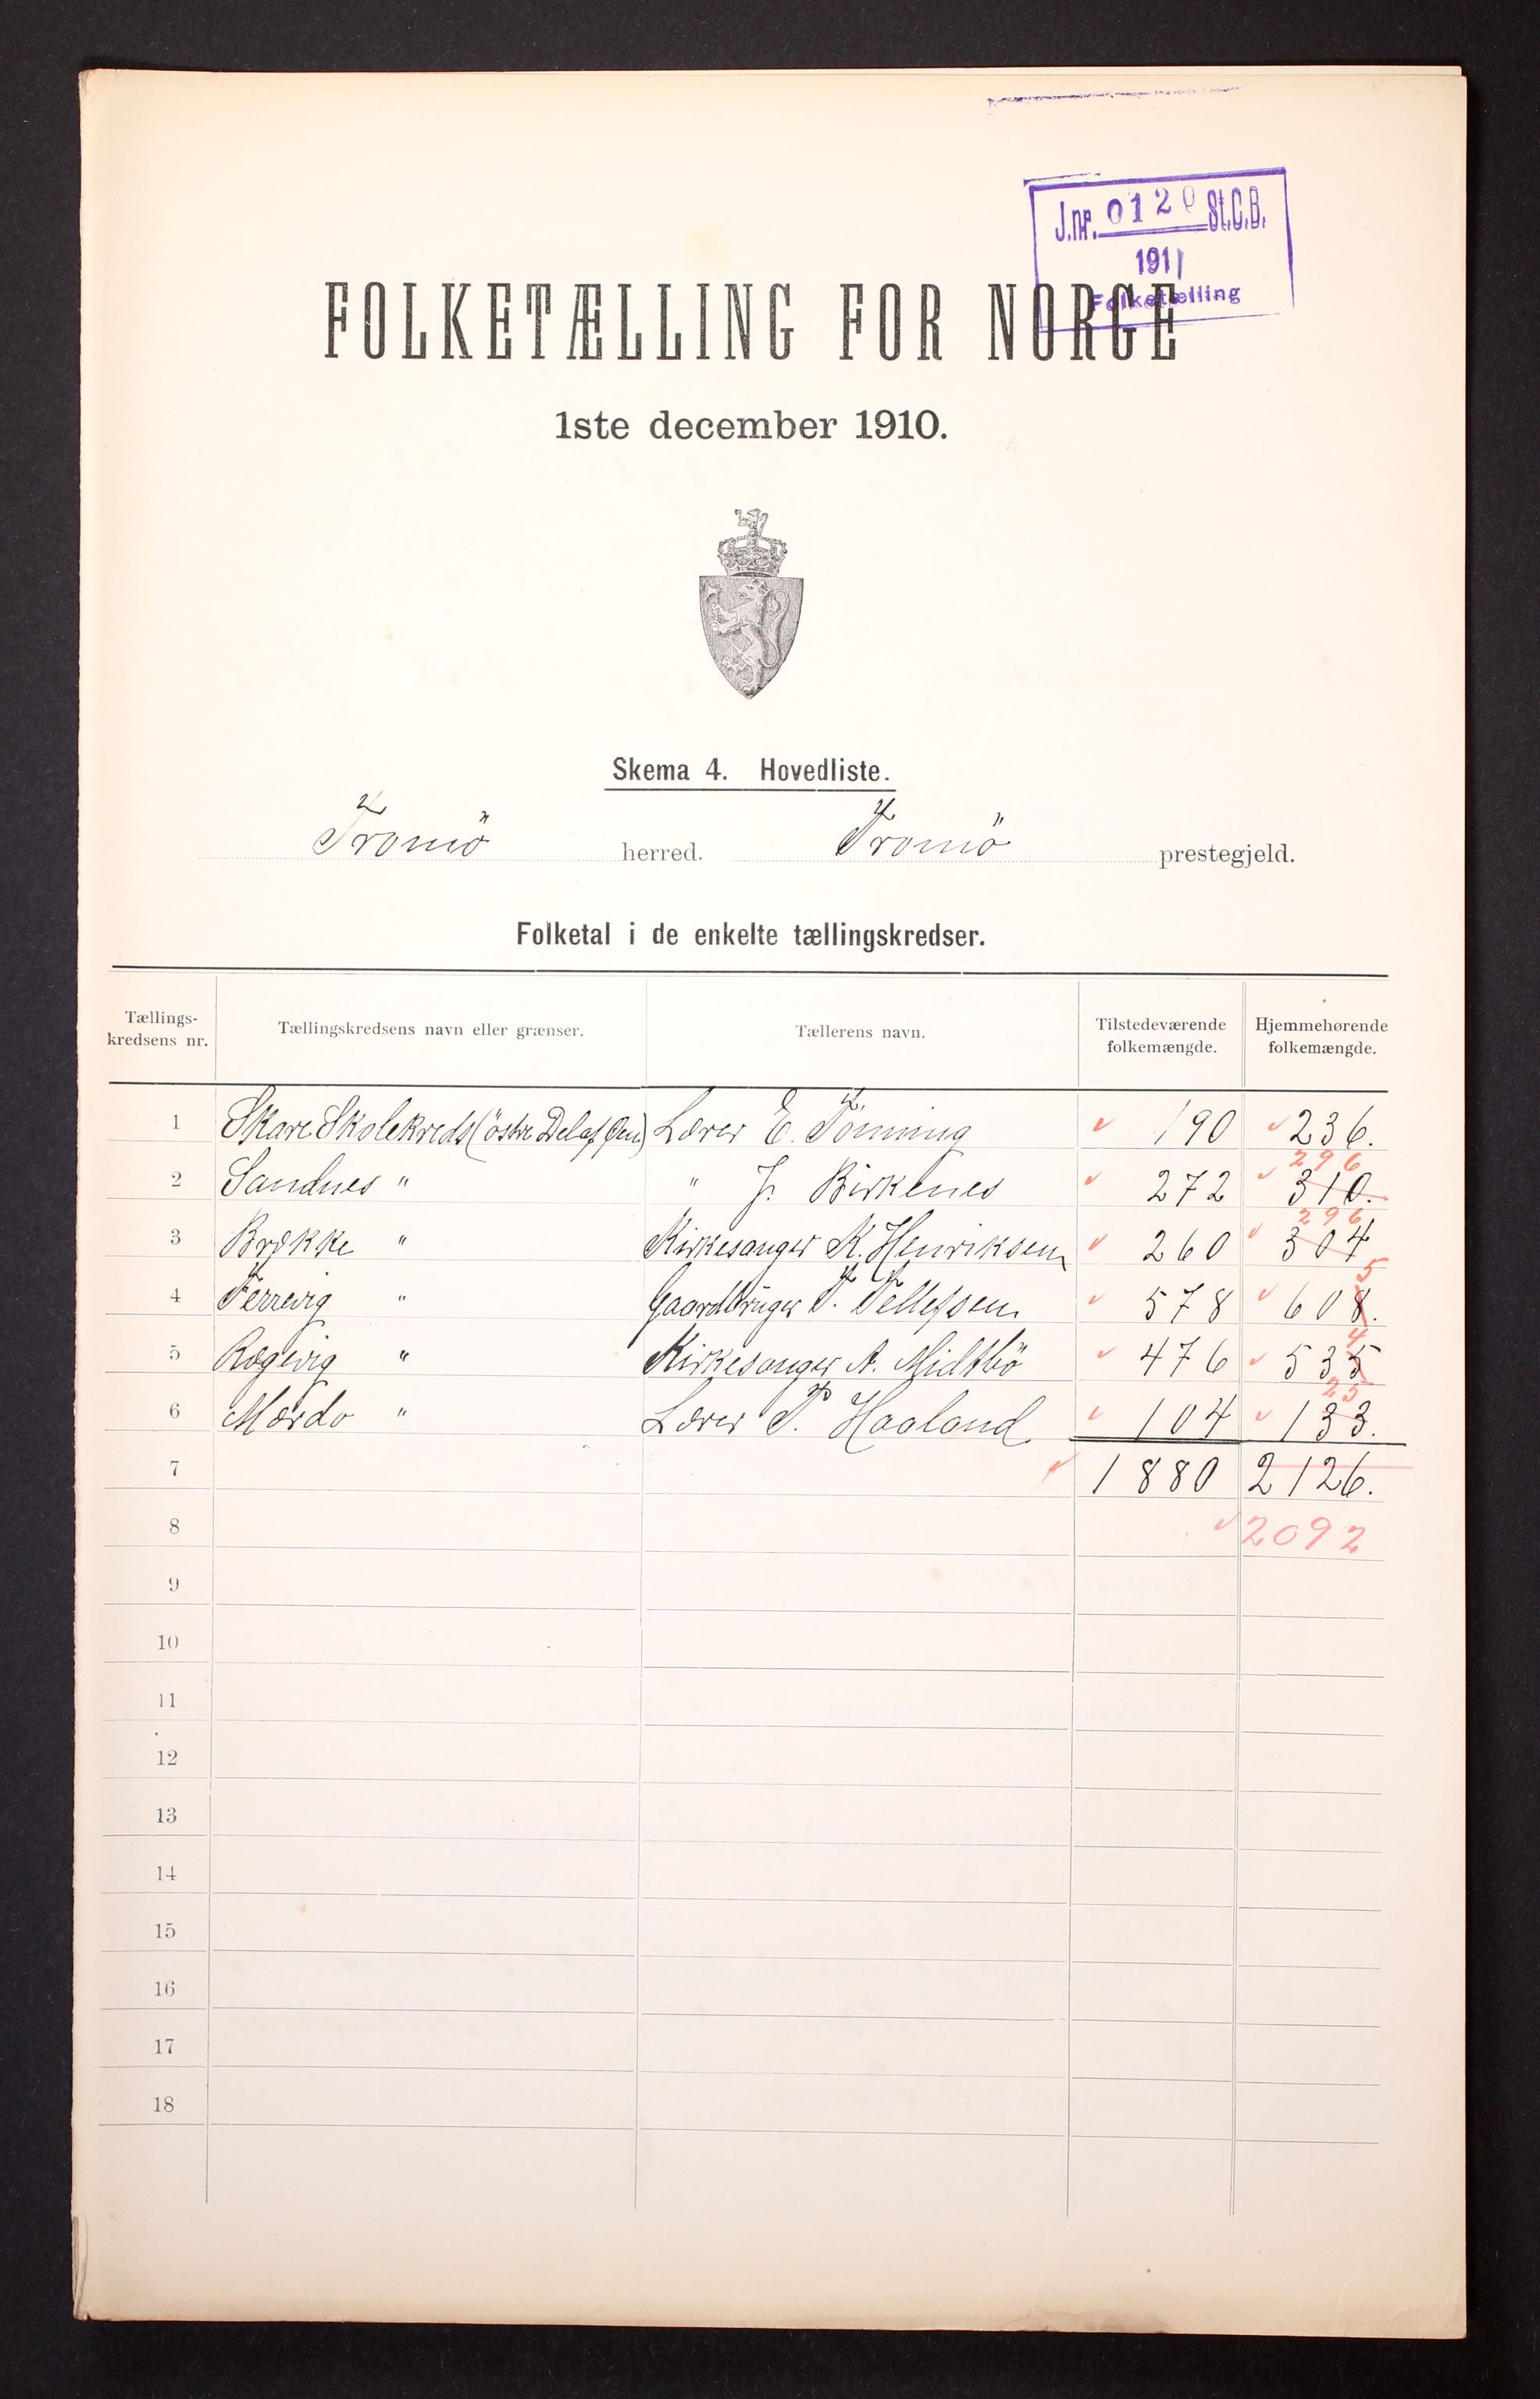 J.nr. 0120 St.C.B.
1911
Folketælling
FOLKETÆLLING FOR NORGE
1ste december 1910.
Skema 4. Hovedliste.
Tromö herred. Tromö prestegjeld.
Folketal i de enkelte tællingskredser.
Tællings-kredsens nr. Tællingskredsens navn eller grænser. Tællerens navn. Tilstedeværende folkemængde. Hjemmehørende folkemængde.
1 Skare Skolekreds (östre Del af Øen) Lærer E. Tönning 190 236.
296
2 Sandnes " " J. Birkenes 272 310.
296
3 Brække " Kirkesanger K. Henriksen 260 304
5
4 Færrevig " Gaardbruger T. Tellefsen 578 608.
4
5 Rægevig " Kirkesanger A. Midtbö 476 535
25
6 Mærdo " Lærer T. Haaland 104 133.
7 1880 2126.
8 2092
9
10
11
12
13
14
15
16
17
18